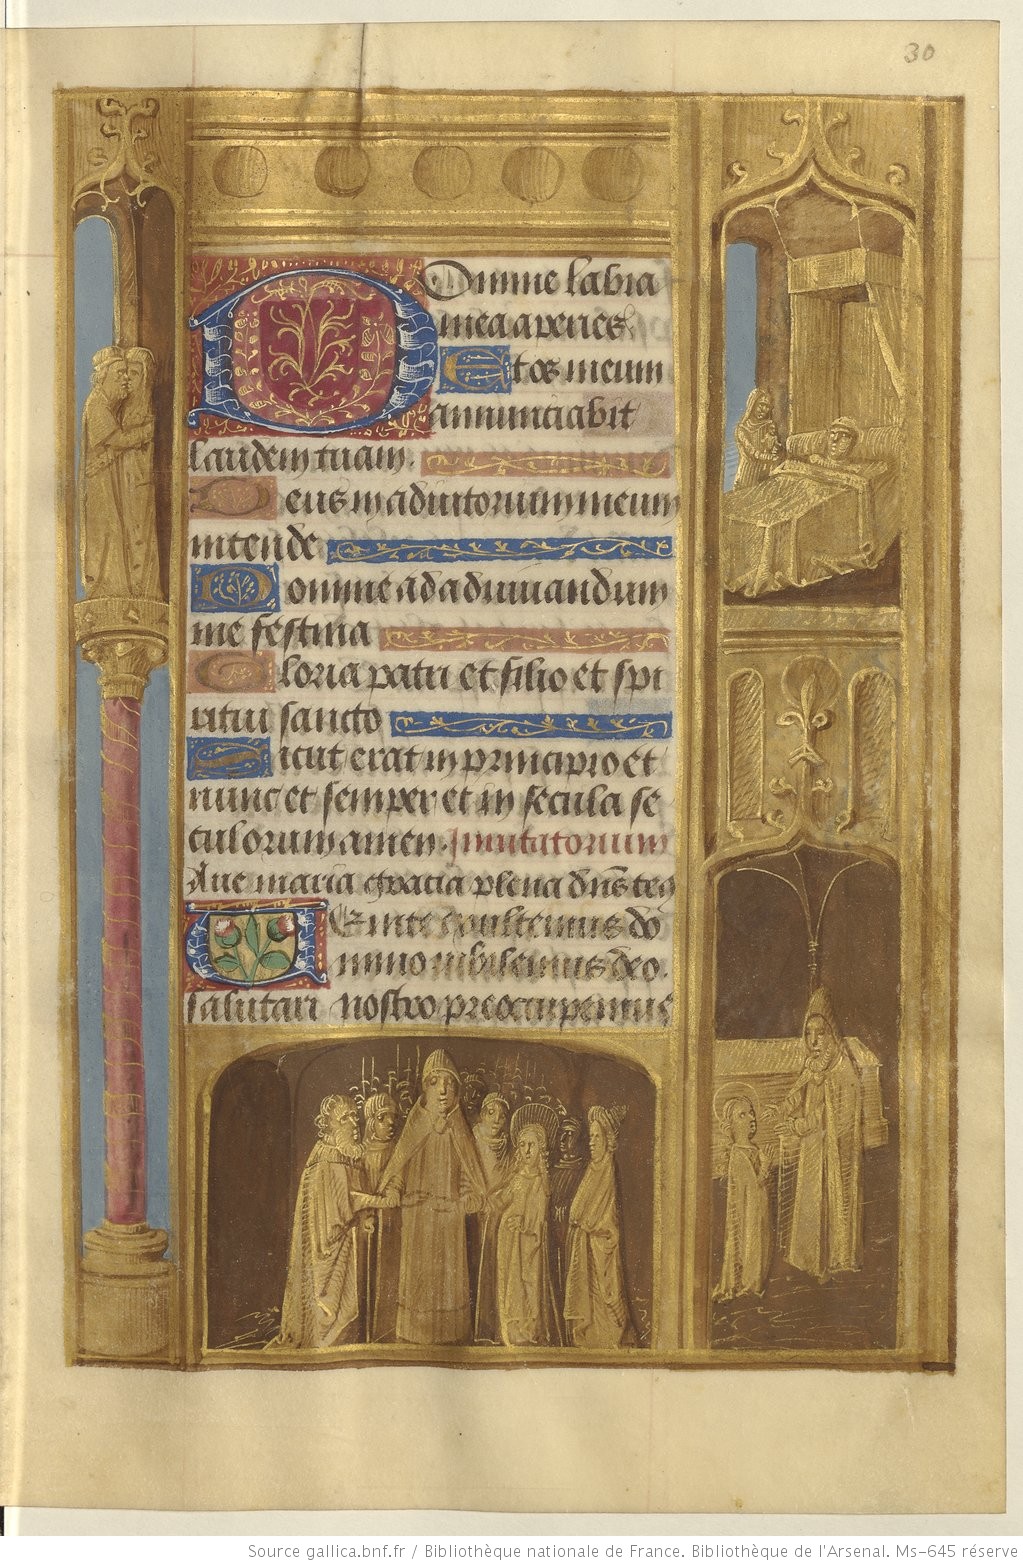 30
Domine labia
mea aperies
Et os meum
annunciabit
laudem tuam.
Deus in adiutorium meum
intende
Domine ad adiuuandum
me festina
Gloria patri et filio et spi
ritui sancto
Sicut erat in principio et
nunc et semper et in secula se
culorum amen. Inuitatorium
Aue maria gracia plena dn̄s tecū
Uenite exultemus do
mino iubilemus deo.
salutari nostro preoccupemus
Source gallica.bnf.fr / Bibliothèque nationale de France. Bibliothèque de l'Arsenal. Ms-645 réserve